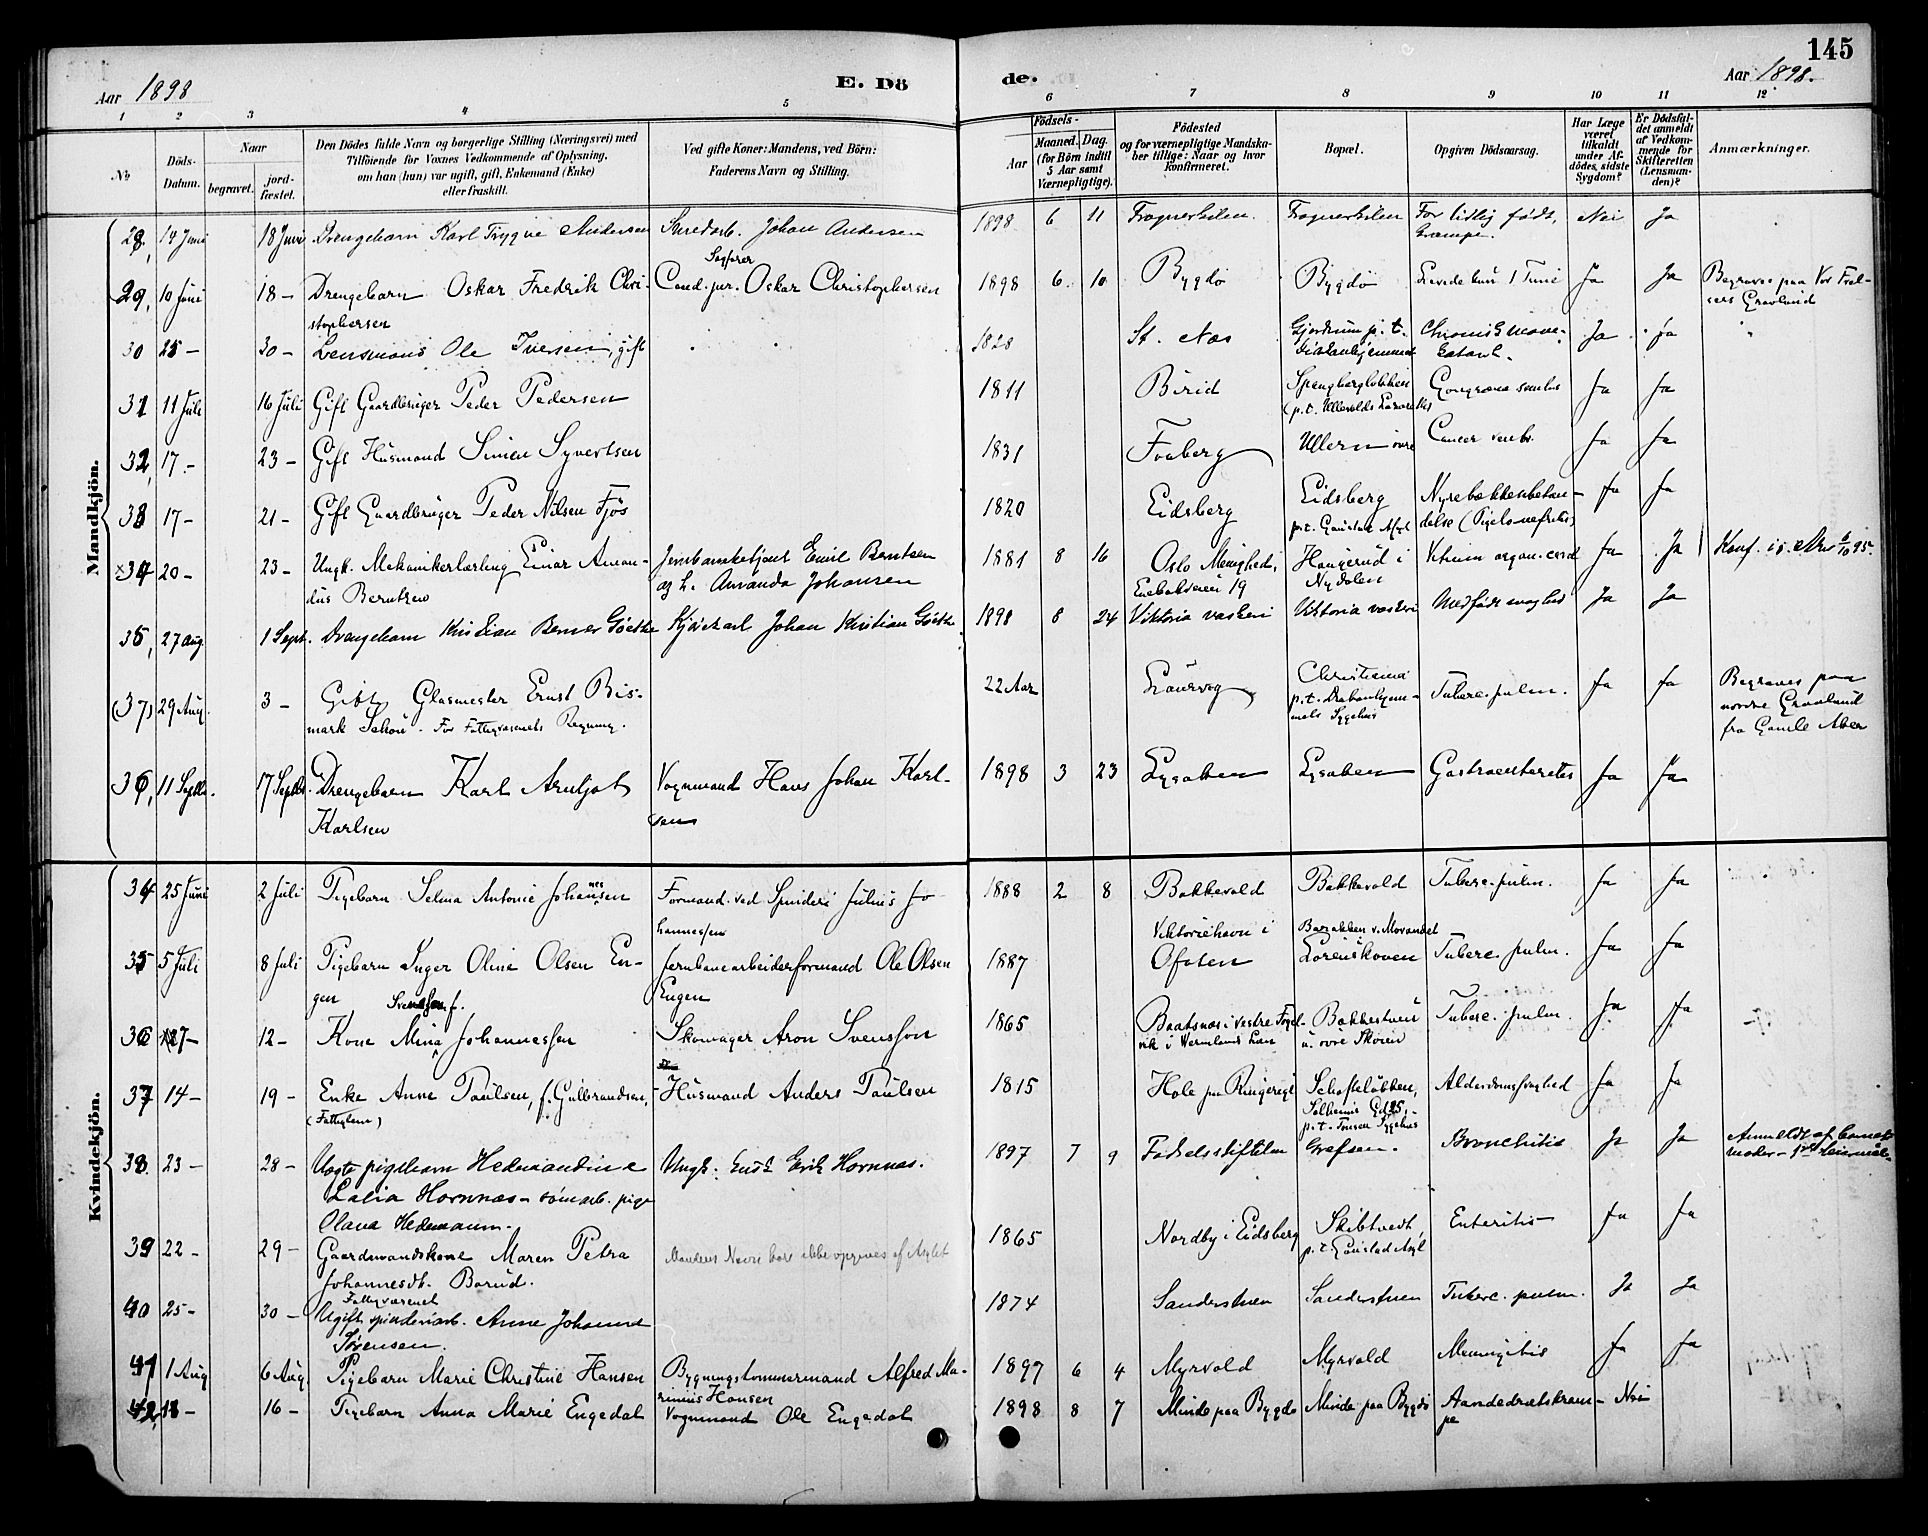 145
Aar 1898
E. Dö
de.
Aar 1898.
1 2 3 4 5 6 7 8 9 10 11 12
No
Döds-Datum.
Naar
begravet.
jord-fæstet.
Den Dödes fulde Navn og borgerlige Stilling (Næringsvei) med
Tilföiende for Voxnes Vedkommende af Oplysning,
om han (hun) var ugift, gift, Enkemand (Enke)
eller fraskilt.
Ved gifte Koner: Mandens, ved Börn:
Faderens Navn og Stilling.
Födsels-
Aar
Maaned. Dag.
(for Börn indtil
5 Aar samt
Værnepligtige).
Födested
og for værnepligtige Mandska-
ber tillige: Naar og hvor
konfirmeret.
Bopæl.
Opgiven Dödsaarsag.
Har Læge
været
tilkaldt
under Af-
dödes, sidste
Sygdom?
Er Dödsfal-
det anmeldt
af Vedkom-
mende for
Skifteretten
(Lensman-
den)?
Anmærkninger.
Mandkjön.
28, 14 Juni 18 Juni Drengebarn Karl Trygve Andersen Johan Andersen 1898 6 11 Frognerkilen. Frognerkilen For tidlig født, Nei Ja
Krampe.
Sagfører
29, 10 Juni 18 - Drengebarn Oskar Fredrik Chri- Cand. jur. Oskar Christophersen 1898 6 10 Bygdø Bygdø Levede kun 1 Time Ja Ja Begraves paa Vor Frel-
stophersen sers Gravlund
30 25 - 30 - Lensmand Ole Iversen, gift 1828 St. Nes Gjerdrum p. t. Ja Ja
31 11 Juli 16 Juli Gift Gaardbruger Peder Pedersen 1811 Birid Gangræna senilis Ja Ja
(p. t. Ullevolds
32, 17. - 23 - Gift Husmand Simen Syvertsen 1831 Faaberg Ullern øvre Cancer ventr. Ja Ja
33 17 - 21 - Gift Gaardbruger Peder Nilsen Fjøs 1820 Eidsberg Eidsberg Nyrebækkenbetæn- Ja Ja
p. t. Gaustad Asyl delse (Pyelo-nefritis)
x34 20 - 23 - Ungk. Mekanikerlærling Einar Aman- Emil Berntsen 1881 8 16 Oslo Menighed, Haugerud i Vitium organ. cord Ja Ja
dus Berntsen og h. Amanda Johansen Enebakveien 19 Nydalen
35, 27 Aug. 1 Sept. Drengebarn Kristian Berner Göethe Kjørekarl Johan Kristian Göethe 1898 8 24 Viktoria vaskeri Viktoria vaskeri Medfødt svaghed Ja Ja
(37) 29 Aug. 3 - Gift Glasmester Ernst Bis- 22 Aar Laurvig Christiania Tuberc. pulm. Ja Ja Begraves paa
mark Schou - For Fattigvæsenets Regning. p. t. nordre Gravlund
fra Gamle Aker
36, 11 Septbr. 17 Septbr. Drengebarn Karl Arnljot Vognmand Hans Johan Karl- 1898 3 23 Lysaker Lysaker Gastroenteritis Ja Ja
Karlsen sen
Kvindekjön.
34 25 Juni 2 Juli Pigebarn Selma Antonie Johannesen Formand ved Spinderi Julius Jo- 1888 2 8 Bakkevold Bakkevold Tuberc. pulm. Ja Ja
hannessen
35 5 Juli 8 Juli Pigebarn Inger Oline Olsen En- Jernbanearbeiderformand Ole Olsen 1887 Viktoriehavn i Tuberc. pulm. Ja Ja
gen Engen Ofoten Lørenskoven
Svensson f.
36 7 - 12 - Kone Mina Johannessen Skomager Aron Svensson 1865 Bakkestuen Tuberc. pulm. Ja Ja
vik i Vermlands Län u. øvre Skøien
37 14 - 19 - Enke Anne Paulsen, f. Gulbrandsen, Husmand Anders Paulsen 1815 Hole paa Ringerige Alderdomssvaghed Ja Ja
p. t. Tonsen Sygehus
38. 23 - 28 - Uægte pigebarn Hedmandine Ungk. Erik Hornnæs. 1897 7 9 Fødselsstiftelsen Grefsen. Bronchitis Ja Ja Anmeldt af Barnets
Lalia Hornnæs - pige moder - 1ste Leiermaal
Olava Hedemann.
39 22 - 29 - Gaardmandskone Maren Petra Mandens Navn kan ikke opgives af Asylet 1865 Nordby i Eidsberg Skibtvedt, Enteritis Ja Ja
Johannesdt. Borud. p. t. Gaustad Asyl
Fattigvæsenet
40 25 - 30 - Ugift spinderiarb. Anne Johanne 1874 Sanderstuen Sanderstuen Tuberc. pulm. Ja Ja
Sørensen.
41 1 Aug 6 Aug. Pigebarn Marie Christine Hansen Bygningstømmermand Alfred Ma- 1897 6 4 Myrvold Myrvold Meningitis Ja Ja
rinius Hansen
42, 18 - 16 - Pigebarn Anna Marie Engedal Vognmand Ole Engedal 1898 8 7 Minde paa Bygdø Minde paa Bygdø Aandedrætskram- Nei
pe